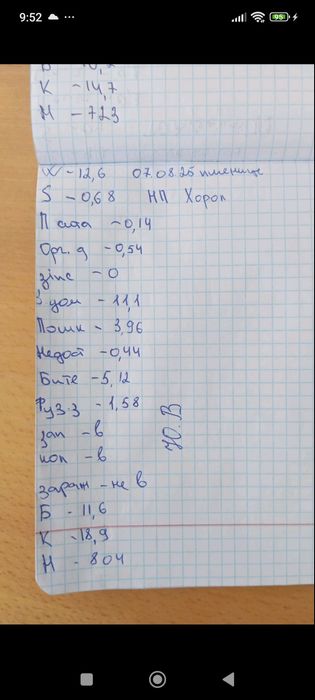 9:52
95
К - 14,7
Н - 723
W - 12,6 07.08.25 пшениця
S - 0,68 НП Хорол
П сміт - 0,14
Орг. д - 0,54
зіпс - 0
З дом - 11,1
Пошк - 3,96
Недоз - 0,44
Бите - 5,12
Фуз.з - 1,58
зап - в
кол - в
зараж - не в
Б - 11,6
К - 18,9
Н - 804
Ю.В